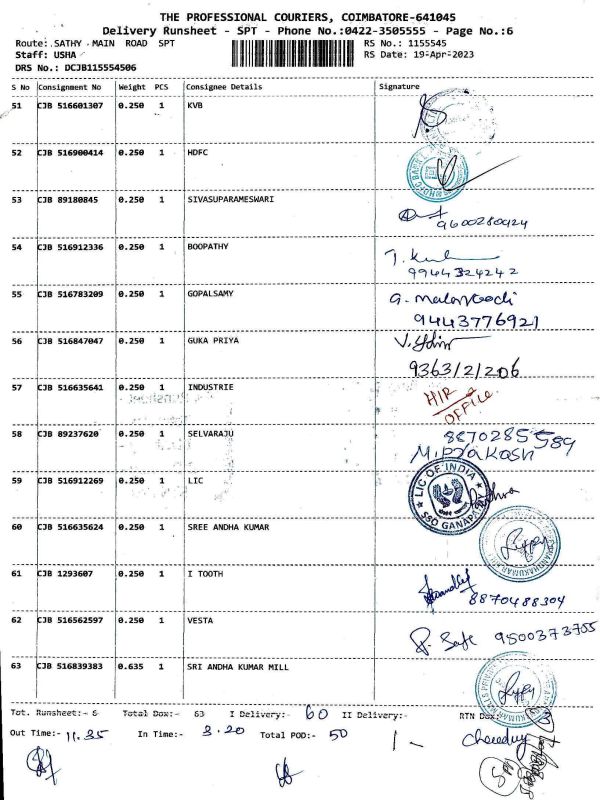 THE PROFESSIONAL COURIERS, COIMBATORE-641045
Delivery Runsheet - SPT - Phone No.:0422-3505555 - Page No.:6
Route: SATHY MAIN ROAD SPT RS No.: 1155545
Staff: USHA RS Date: 19-Apr-2023
DRS No.: DCJB115554506
S No Consignment No Weight PCS Consignee Details Signature
51 CJB 516601307 0.250 1 KVB
52 CJB 516900414 0.250 1 HDFC
HDFC BANK
53 CJB 89180845 0.250 1 SIVASUPARAMESWARI
9600280424
54 CJB 516912336 0.250 1 BOOPATHY
9944324242
55 CJB 516783209 0.250 1 GOPALSAMY G.
9443776921
56 CJB 516847047 0.250 1 GUKA PRIYA V.
9363121206
57 CJB 516635641 0.250 1 INDUSTRIE
OFFICE
58 CJB 89237620 0.250 1 SELVARAJU 8870285589
M. Prakash
59 CJB 516912269 0.250 1 LIC
LIC OF INDIA
SSO GANAPA
60 CJB 516635624 0.250 1 SREE ANDHA KUMAR
61 CJB 1293607 0.250 1 I TOOTH
8870488304
62 CJB 516562597 0.250 1 VESTA
9500373755
63 CJB 516839383 0.635 1 SRI ANDHA KUMAR MILL
Tot. Runsheet:- 6 Total Dox:- 63 I Delivery:- 60 II Delivery:- RTN Dox:- 3
Out Time:- 11.35 In Time:- 3.20 Total POD:- 50 1 -